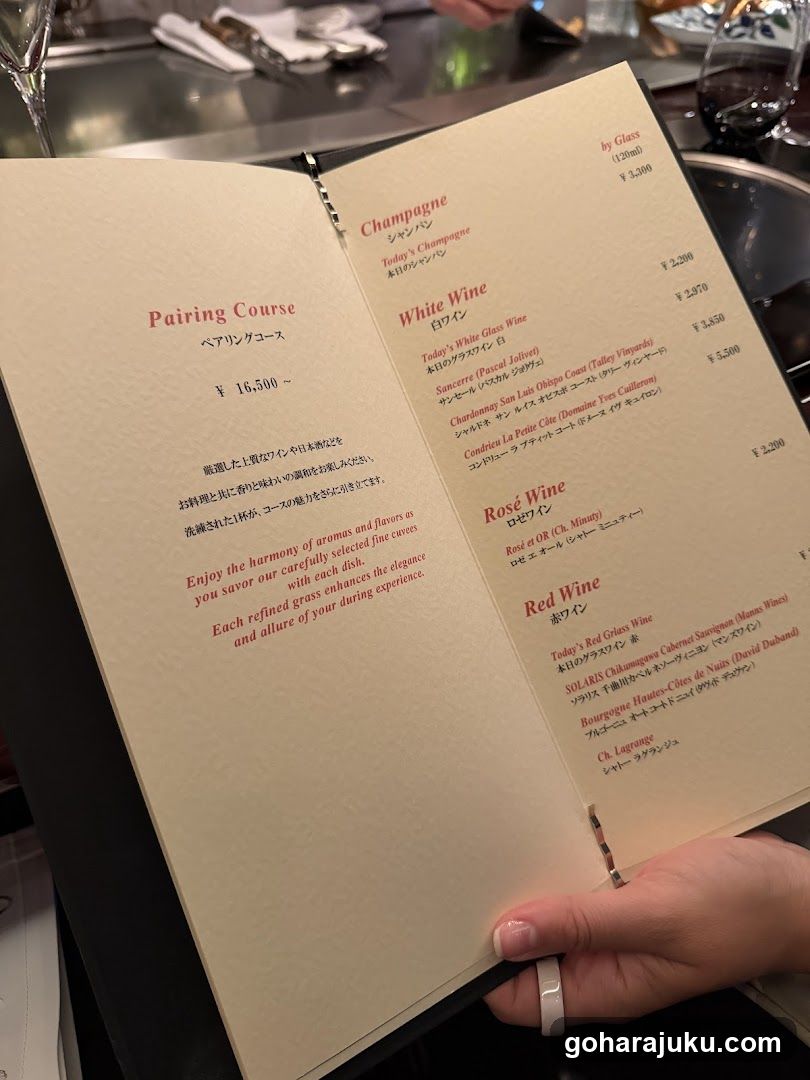 Pairing Course
ペアリングコース
¥ 16,500 ~
厳選した上質なワインや日本酒などを
お料理と共に香りと味わいの調和をお楽しみください。
洗練された1杯が、コースの魅力をさらに引き立てます。
Enjoy the harmony of aromas and flavors as
you savor our carefully selected fine cuvees
with each dish.
Each refined grass enhances the elegance
and allure of your during experience.
by Glass
(120ml)
Champagne
シャンパン
Today's Champagne ¥ 3,300
本日のシャンパン
White Wine
白ワイン
Today's White Glass Wine ¥ 2,200
本日のグラスワイン 白
Sancerre (Pascal Jolivet) ¥ 2,970
サンセール (パスカル ジョリヴェ)
Chardonnay San Luis Obispo Coast (Talley Vinyards) ¥ 3,850
シャルドネ サン ルイス オビスポ コースト (タリー ヴィンヤード)
Condrieu La Petite Côte (Domaine Yves Cuilleron) ¥ 5,500
コンドリュー ラ プティット コート (ドメーヌ イヴ キュイロン)
Rosé Wine
ロゼワイン
Rosé et OR (Ch. Minuty) ¥ 2,200
ロゼ エ オール (シャトー ミニュティー)
Red Wine
赤ワイン
Today's Red Grlass Wine ¥
本日のグラスワイン 赤
SOLARIS Chikumagawa Cabernet Sauvignon (Manns Wines)
ソラリス 千曲川カベルネソーヴィニヨン (マンズワイン)
Bourgogne Hautes-Côtes de Nuits (David Duband)
ブルゴーニュ オート コート ド ニュイ (ダヴィド デュヴァン)
Ch. Lagrange
シャトー ラグランジュ
goharajuku.com